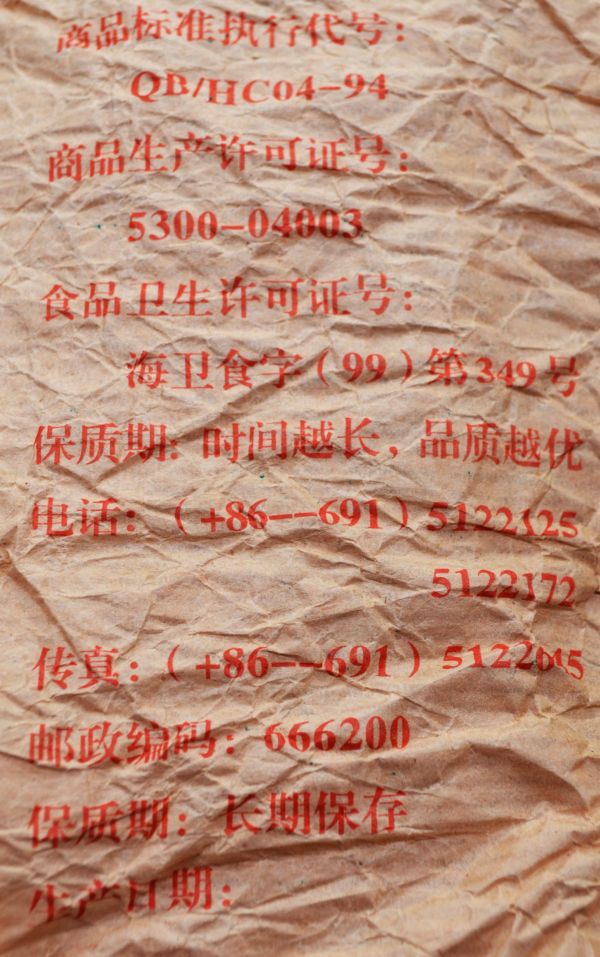 商品标准执行代号:
QB/HC04-94
商品生产许可证号:
5300-04003
食品卫生许可证号:
海卫食字(99)第349号
保质期: 时间越长, 品质越优
电话: (+86--691) 5122125
5122172
传真: (+86--691) 5122015
邮政编码: 666200
保质期: 长期保存
生产日期: